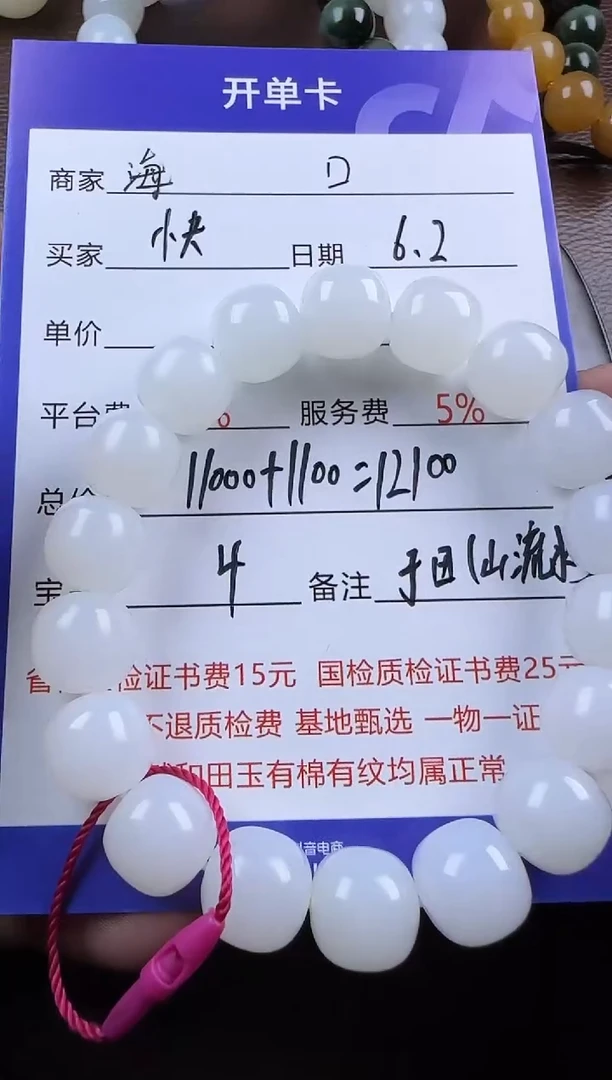 开单卡
商家 海 D
买家 快 日期 6.2
单价
平台费 % 服务费 5%
总价 11000+1100=12100
宝 4 备注 于田(山流水
省 验证书费15元 国检质检证书费25元
不退质检费 基地甄选 一物一证
和田玉有棉有纹均属正常
抖音电商